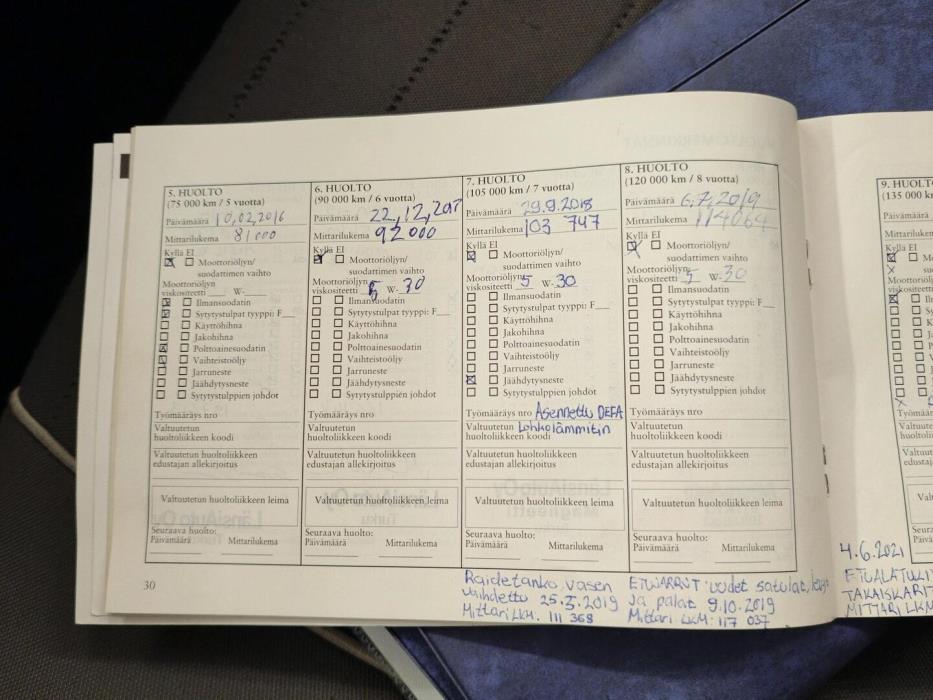 5. HUOLTO
(75 000 km / 5 vuotta)
Päivämäärä 10.02.2016
Mittarilukema 81 000
Kyllä EI
Moottoriöljyn/
suodattimen vaihto
Moottoriöljyn
viskositeetti ___ W-___
Ilmansuodatin
Sytytystulpat tyyppi: F__
Käyttöhihna
Jakohihna
Polttoainesuodatin
Vaihteistoöljy
Jarruneste
Jäähdytysneste
Sytytystulppien johdot
Työmääräys nro
Valtuutetun
huoltoliikkeen koodi
Valtuutetun huoltoliikkeen
edustajan allekirjoitus
Valtuutetun huoltoliikkeen leima
Seuraava huolto:
Päivämäärä Mittarilukema
6. HUOLTO
(90 000 km / 6 vuotta)
Päivämäärä 22,12,
Mittarilukema 92 000
Kyllä EI
Moottoriöljyn/
suodattimen vaihto
Moottoriöljyn
viskositeetti 5 W-30
Ilmansuodatin
Sytytystulpat tyyppi: F__
Käyttöhihna
Jakohihna
Polttoainesuodatin
Vaihteistoöljy
Jarruneste
Jäähdytysneste
Sytytystulppien johdot
Työmääräys nro
Valtuutetun
huoltoliikkeen koodi
Valtuutetun huoltoliikkeen
edustajan allekirjoitus
Valtuutetun huoltoliikkeen leima
Seuraava huolto:
Päivämäärä Mittarilukema
7. HUOLTO
(105 000 km / 7 vuotta)
Päivämäärä 29.9.2018
Mittarilukema 103 747
Kyllä EI
Moottoriöljyn/
suodattimen vaihto
Moottoriöljyn
viskositeetti 5 W-30
Ilmansuodatin
Sytytystulpat tyyppi: F__
Käyttöhihna
Jakohihna
Polttoainesuodatin
Vaihteistoöljy
Jarruneste
Jäähdytysneste
Sytytystulppien johdot
Työmääräys nro Asennettu DEFA
Valtuutetun Lohkolämmitin
huoltoliikkeen koodi
Valtuutetun huoltoliikkeen
edustajan allekirjoitus
Valtuutetun huoltoliikkeen leima
Seuraava huolto:
Päivämäärä Mittarilukema
Raidetanko, vasen
vaihdettu 25.3.2019
Mittari LKM: 111 368
8. HUOLTO
(120 000 km / 8 vuotta)
Päivämäärä 6.7.2019
Mittarilukema 114064
Kyllä EI
Moottoriöljyn/
suodattimen vaihto
Moottoriöljyn
viskositeetti 5 W-30
Ilmansuodatin
Sytytystulpat tyyppi: F__
Käyttöhihna
Jakohihna
Polttoainesuodatin
Vaihteistoöljy
Jarruneste
Jäähdytysneste
Sytytystulppien johdot
Työmääräys nro
Valtuutetun
huoltoliikkeen koodi
Valtuutetun huoltoliikkeen
edustajan allekirjoitus
Valtuutetun huoltoliikkeen leima
Seuraava huolto:
Päivämäärä Mittarilukema
ETUJARRUT: uudet satulat,
ja palat 9.10.2019
Mittari LKM: 117 037
30
9. HUOLT
(135 000 km
Päivämäärä
Mittarilukema
Kyllä EI
4.6.2021
ETUALATUKI
TAKAISKARIT
MITTARI LKM